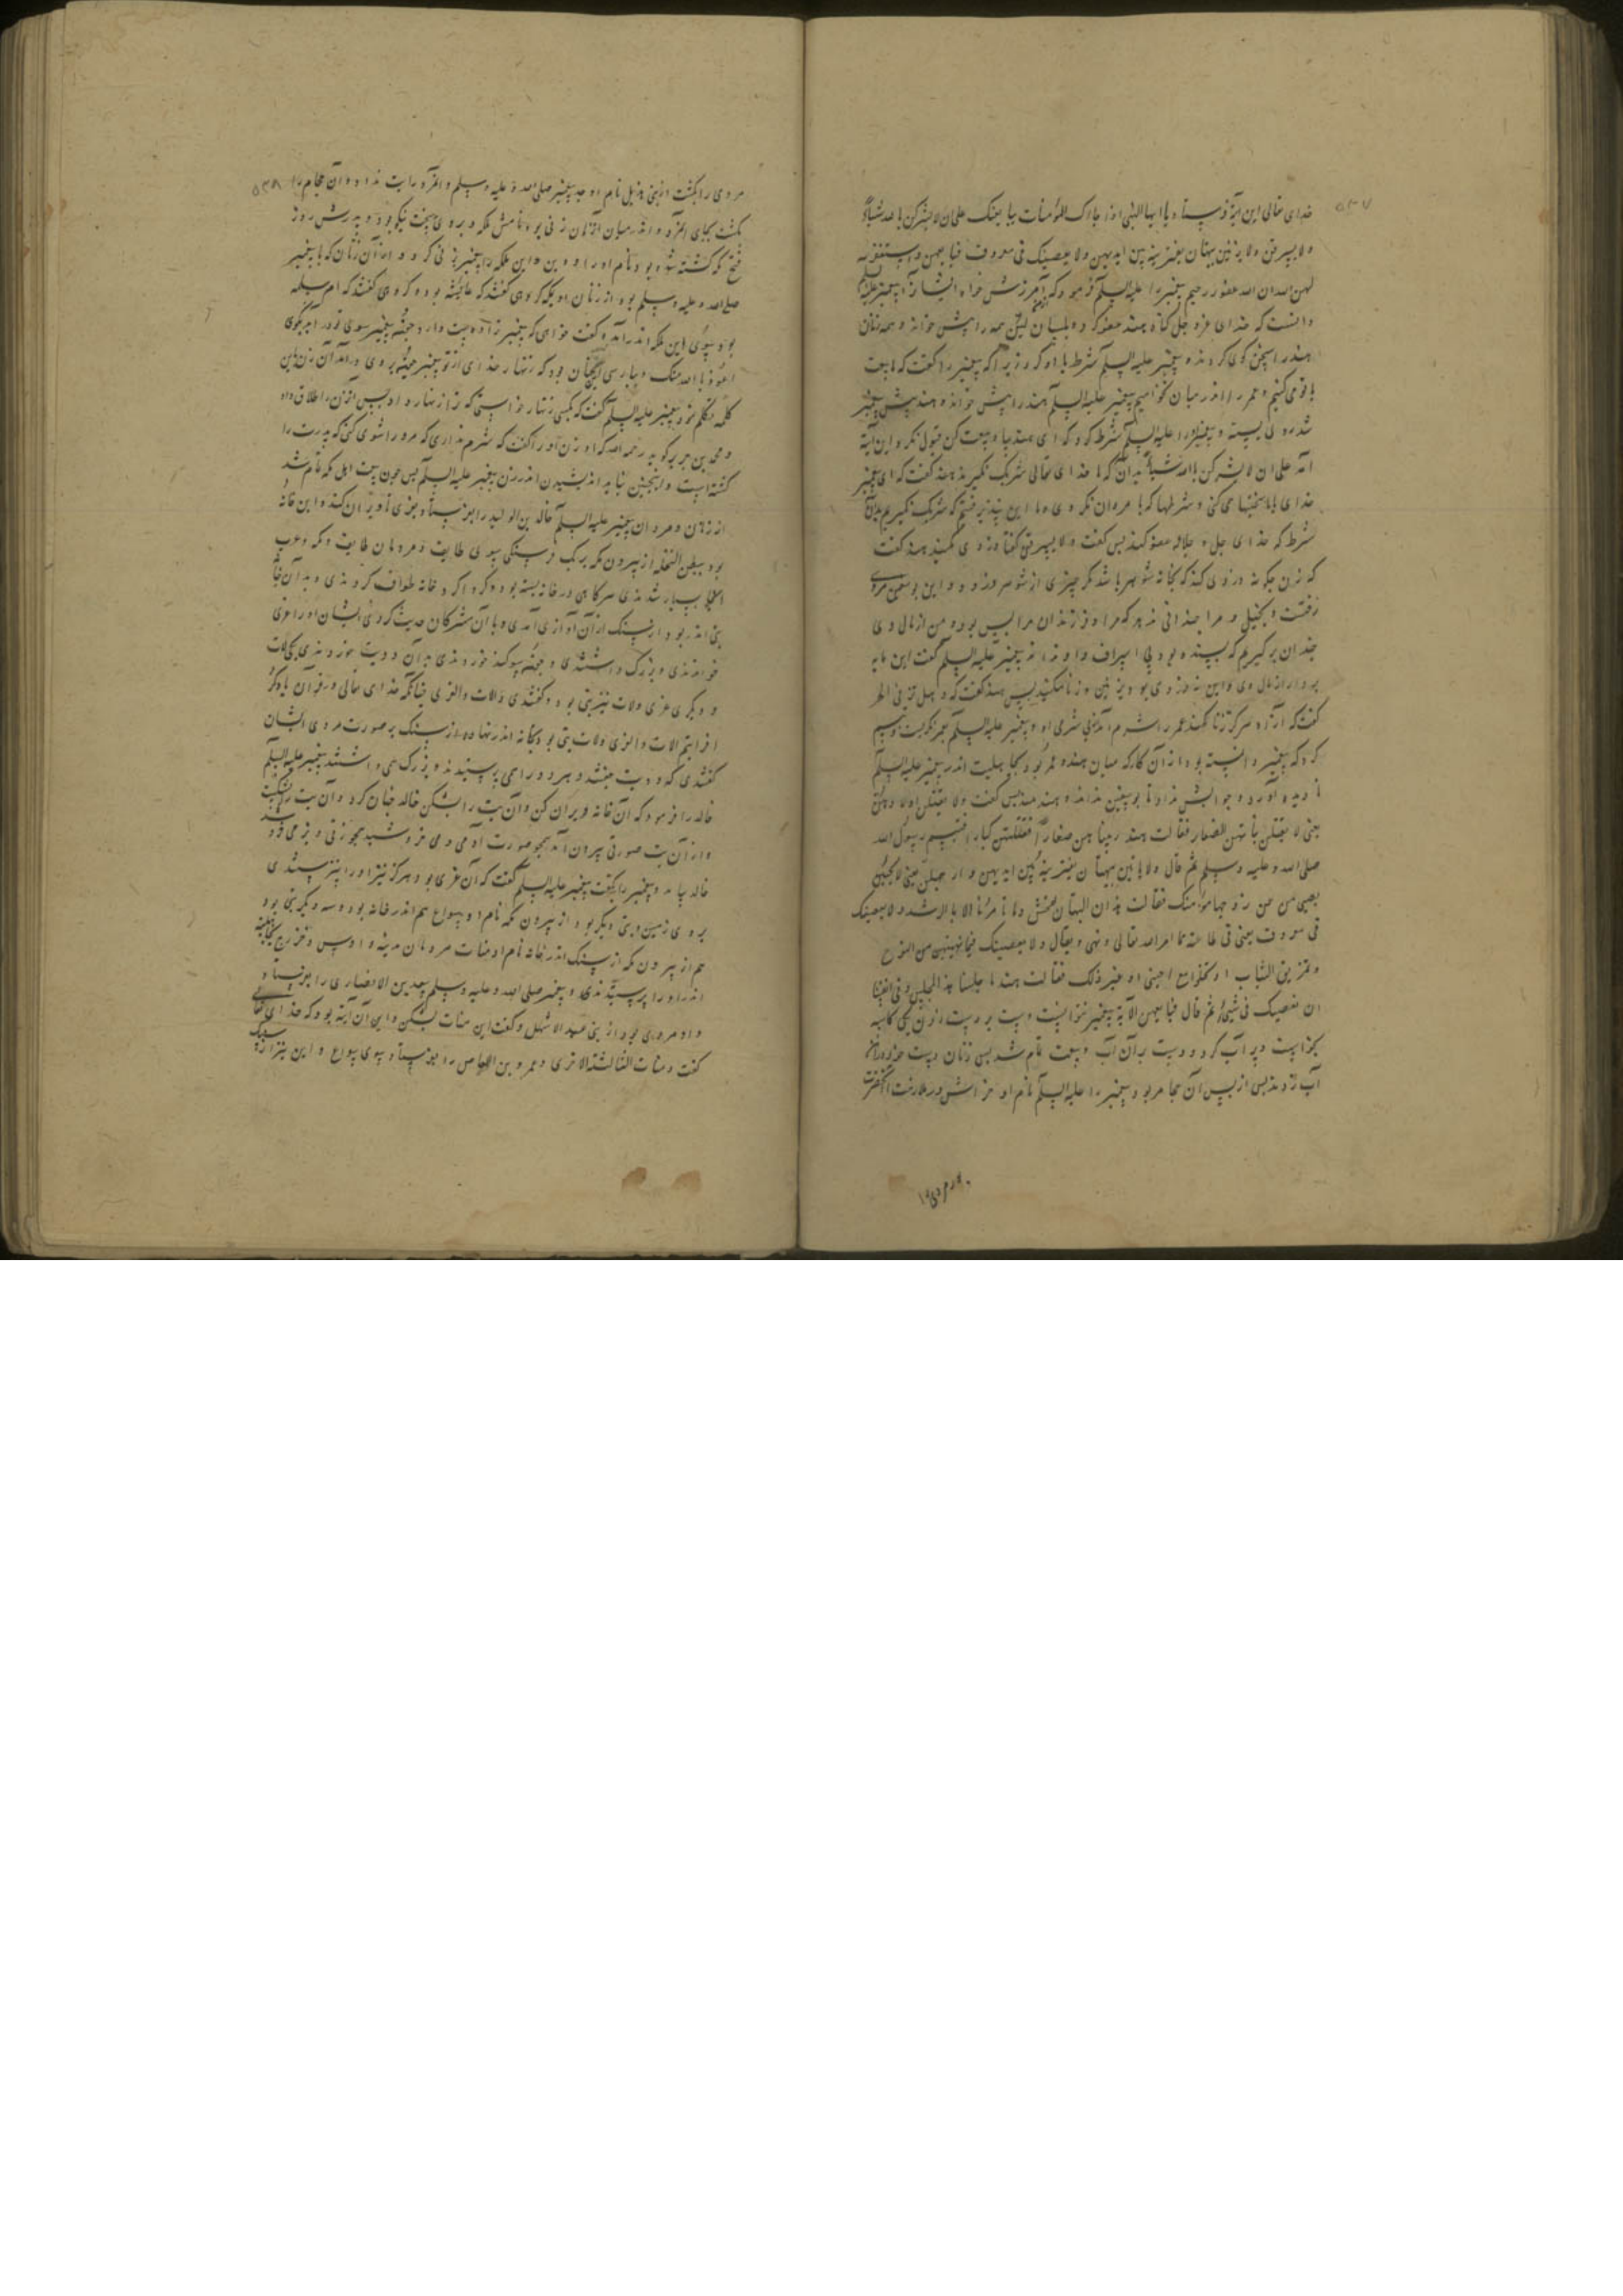 ۵۳۷
خدای تعالی این آیة فرستاد یا ایها النبی اذا جاءک المؤمنات یبایعنک علی ان لا یشرکن بالله شیئا
ولا یسرقن ولا یأتین ببهتان یفترینه بین ایدیهن ولا یعصینک فی معروف فبایعهن واستغفر
لهن الله ان الله غفور رحیم پیغمبر را علیه السلم فرمود که آمرزش خواه ایشانرا پیغمبر علیه السلم
دانست که خدای عزو جل گناه هند عفو کرد
هند را کردند و پیغمبر علیه السلم شرط با او کرد زیرا که پیغمبر را گفت که ما بیعت
با تو می کنیم و عمر را اندر میان نخواهیم پیغمبر علیه السلم هند را پیش خواند و هند پیش پیغمبر
شد روی بسته و پیغمبر علیه السلم شرط کرد که ای هند بیا و بیعت کن قبول کرد این آیة
که علی ان لا یشرکن بالله شیئا بدان که با خدای تعالی شریک نگیرند هند گفت که ای پیغمبر
خدای با ما سختیها می کنی و شرطها که با مردان نکردی و ما این پذیرفتیم که شریک نگیریم بدان
شرط که خدای جل و جلاله عفو کند پس گفت ولا یسرقن گفتا دزدی مکنید هند گفت
که زن چگونه دزدی کند که بخانه شوهر باشد مگر چیزی از شوهر دزدد و این بوسفین مردی
زفتست و بخیل و مرا چندانی ندهد که مرا و فرزندان مرا بس بود و من از مال وی
چندان برگیرم که بسنده بود بی اسراف و پیغمبر علیه السلم گفت این مایه
بردار از مال وی و این نه دزدی بود ولا یزنین و زنا مکنید پس هند گفت که و هل تزنی الحر
گفت که آزاد هرگز زنا کند عمر را شرم آمد پیغمبر علیه السلم بعمر نگریست و تبسم
کرد که پیغمبر دانسته بود از آن کار که میان هند و عمر بود بجاهلیت اندر پیغمبر علیه السلم
نا دیده آورد و جوابش نداد تا بوسفین نداند و هند پس گفت ولا یقتلن اولادهن
یعنی لا یقتلن بناتهن الصغار فقالت هند ربیناهن صغارا فقتلتهن کبارا فتبسم رسول الله
صلی الله و علیه وسلم ثم قال ولا یأتین ببهتان یفترینه بین ایدیهن و ارجلهن یعنی
فقالت هند ان البهتان لفحش وما تأمرنا الا بالرشد ولا یعصینک
فی معروف یعنی فی طاعة مما امر الله تعالی و نهی و یقال ولا یعصینک فیما نهیتهن من النوح
و تمزیق الثیاب او تخلوا مع اجنبی او غیر ذلک فقالت هند ما جلسنا هذا المجلس و فی انفسنا
ان نعصیک فی شیٔ ثم قال فبایعهن الآیة پیغمبر نتوانست دست بر دست زن کاسه
بخواست و پر آب کرد و دست بدان آب و بیعت تمام شد پس زنان دست خود در آن
آب زدند پس از پس آن

۵۳۸
مردی را بکشت از بنی هذیل نام او پیغمبر صلی الله و علیه وسلم
بکشت بجای و اندر میان آن زنان زنی بود نامش ملکه و بروی سخت نیکو بود و پدرش روز
فتح مکه کشته شده بود و نام او داود بود و این ملکه را پیغمبر بزنی کرد و از آن زنان که با پیغمبر
صلی الله و علیه وسلم بود از زنان او یکی گروهی گفتند که عایشه بود و گروهی گفتند که ام سلمه
بود بسوی این ملکه اندر آمد و گفت خواهی که پیغمبر ترا دوست دارد چون پیغمبر سوی تو در آید بگوی
اعوذ بالله منک و بپارسی چنان بود که زنهار خدای از تو پیغمبر چون بروی در آمد آن زن این
کلمه تکلم نمود پیغمبر علیه السلم گفت که بکسی زنهار خواستی که ترا زنهار داد پس آن زن را طلاق داد
و محمد بن جریر گوید رحمه الله که او زن او را گفت که شرم نداری که مرورا شوی کنی که پدرت را
کشته است و اینچنین نباید اندیشیدن اندر زن پیغمبر علیه السلم پس چون بیعت اهل مکه تمام شد
از زنان و مردان پیغمبر علیه السلم خالد بن الولید را بفرستاد بعزی تا ویران کند و این خانه
بود ببطن النخله از بیرون مکه بر یک فرسنگی سوی طایف و مردمان طایف و مکه و عرب
بسیار شدندی در خانه بسته بود و گرد اگرد خانه طواف کردندی و بدان خانه
بتی اندر بود از سنگ از آن آوازی آمدی و با آن مشرکان حدیث کردی ایشان او را عزی
خواندندی و بزرگ داشتندی و چون سوگند خوردندی بدان دو بت خوردندی یکی لات
و دیگر عزی ولات نیز بتی بود و گفتندی واللات والعزی چنانکه خدای تعالی در قرآن یاد کرد
افرایتم اللات والعزی ولات بتی بود بخانه اندر نهاده از سنگ بر صورت مردی ایشان
گفتندی که دو بت هستند و هر دو را همی پرسیدند و بزرگ می داشتند پیغمبر علیه السلم
خالد را فرمود که آن خانه ویران کن و آن بت را بشکن خالد چنان کرد و آن بت بشکست
و از آن بت صورتی بیرون آمد همچو صورت آدمی و می خروشید همچو زنی
خالد بیامد و پیغمبر را بگفت پیغمبر علیه السلم گفت که آن عزی بود و هرگز نیز او را نپرستندی
بروی زمین و بتی دیگر بود از بیرون مکه نام او سواع هم اندر خانه بود و سه دیگر بتی بود
هم از بیرون مکه از سنگ اندر خانه نام او منات مردمان مدینه و اوس و خزرج
اندر او را پرستیدندی و پیغمبر صلی الله و علیه وسلم سعد بن الانصاری را بفرستاد
و او مردی بود از بنی عبد الاشهل و گفت این منات بشکن و این آن آیة بود که خدای تعالی
گفت و منات الثالثة الاخری و عمرو بن العاص را بفرستاد بسوی سواع و این نیز از سنگ